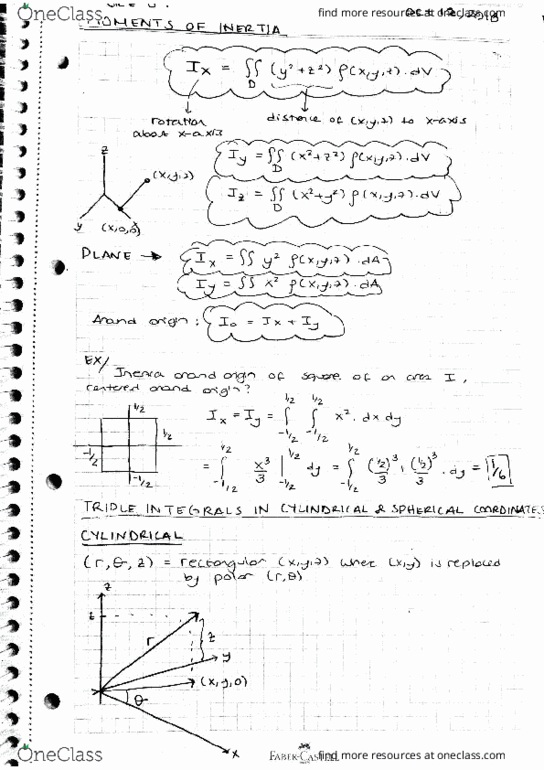 OneClass
find more resources at oneclass.com
Oct 12, 2018
MOMENTS OF INERTIA
Ix = ∬_D (y² + z²) ρ(x,y,z) · dV
rotation about x-axis
distance of (x,y,z) to x-axis
Iy = ∬_D (x² + z²) ρ(x,y,z) · dV
Iz = ∬_D (x² + y²) ρ(x,y,z) · dV
z
(x,y,z)
y
(x,0,0)
PLANE →
Ix = ∬ y² ρ(x,y,z) · dA
Iy = ∬ x² ρ(x,y,z) · dA
Around origin: I₀ = Ix + Iy
EX/ Inertia around origin of square of an area I,
centered around origin?
1/2
-1/2
1/2
-1/2
Ix = Iy = ∫_{-1/2}^{1/2} ∫_{-1/2}^{1/2} x² · dx dy
= ∫_{-1/2}^{1/2} x³/3 |_{-1/2}^{1/2} dy = ∫_{-1/2}^{1/2} (1/2)³/3 + (1/2)³/3 · dy = 1/6
TRIPLE INTEGRALS IN CYLINDRICAL & SPHERICAL COORDINATES
CYLINDRICAL
(r, θ, z) = rectangular (x,y,z) where (x,y) is replaced
by polar (r,θ)
z
r
z
y
(x,y,0)
θ
x
OneClass
FABER-CASTELL
find more resources at oneclass.com